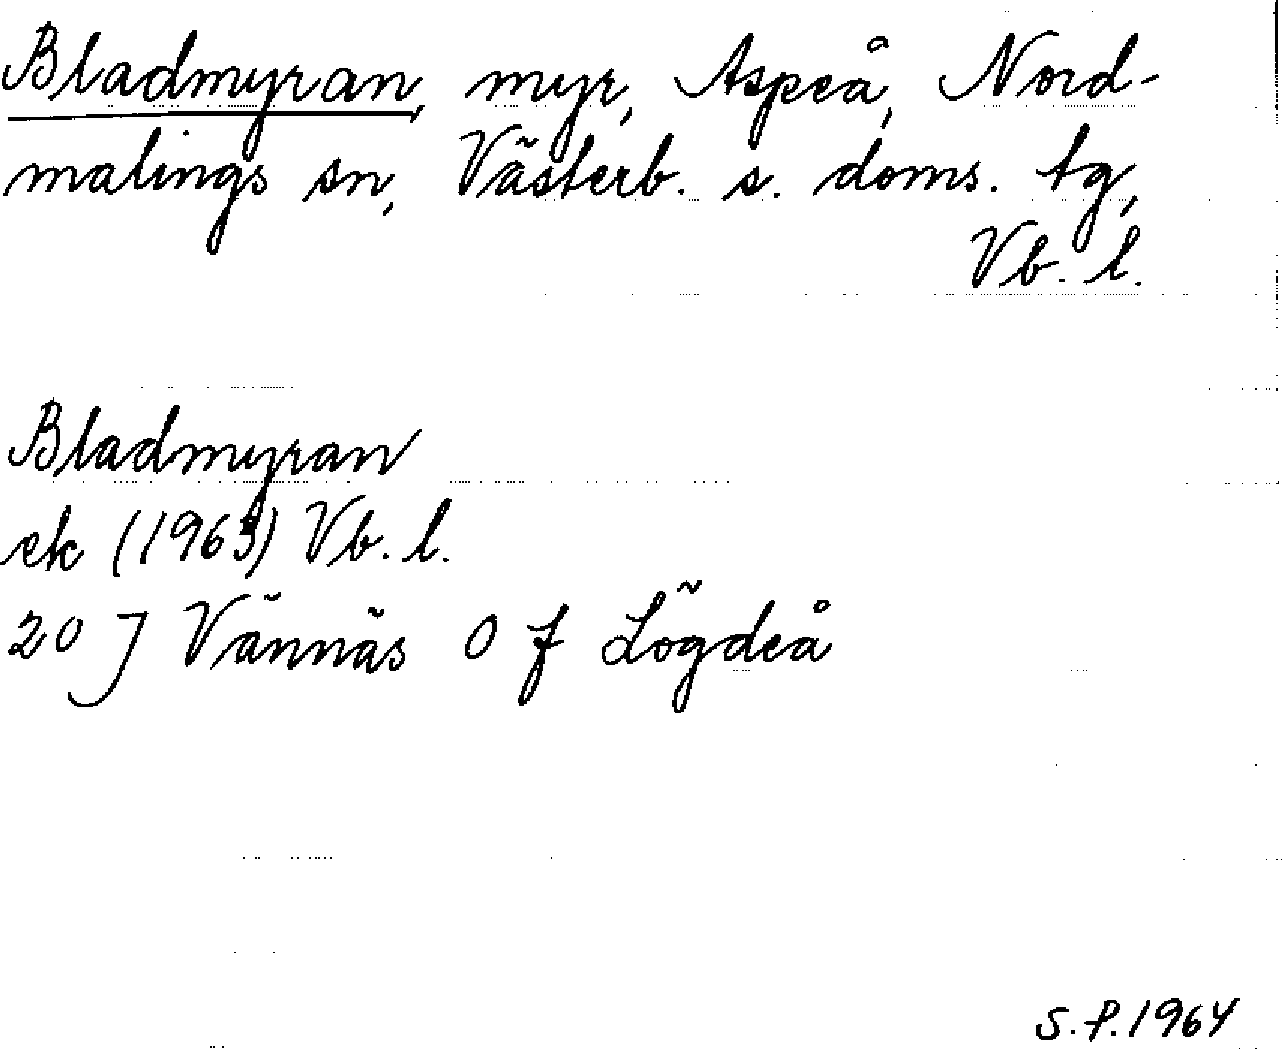 Bladmyran, myr, Aspeå, Nord-
malings sn, Västerb. s. doms. tg,
Vb. l.
Bladmyran
ek (1963) Vb. l.
20 J Vännäs 0 f Lögdeå
S.P. 1964